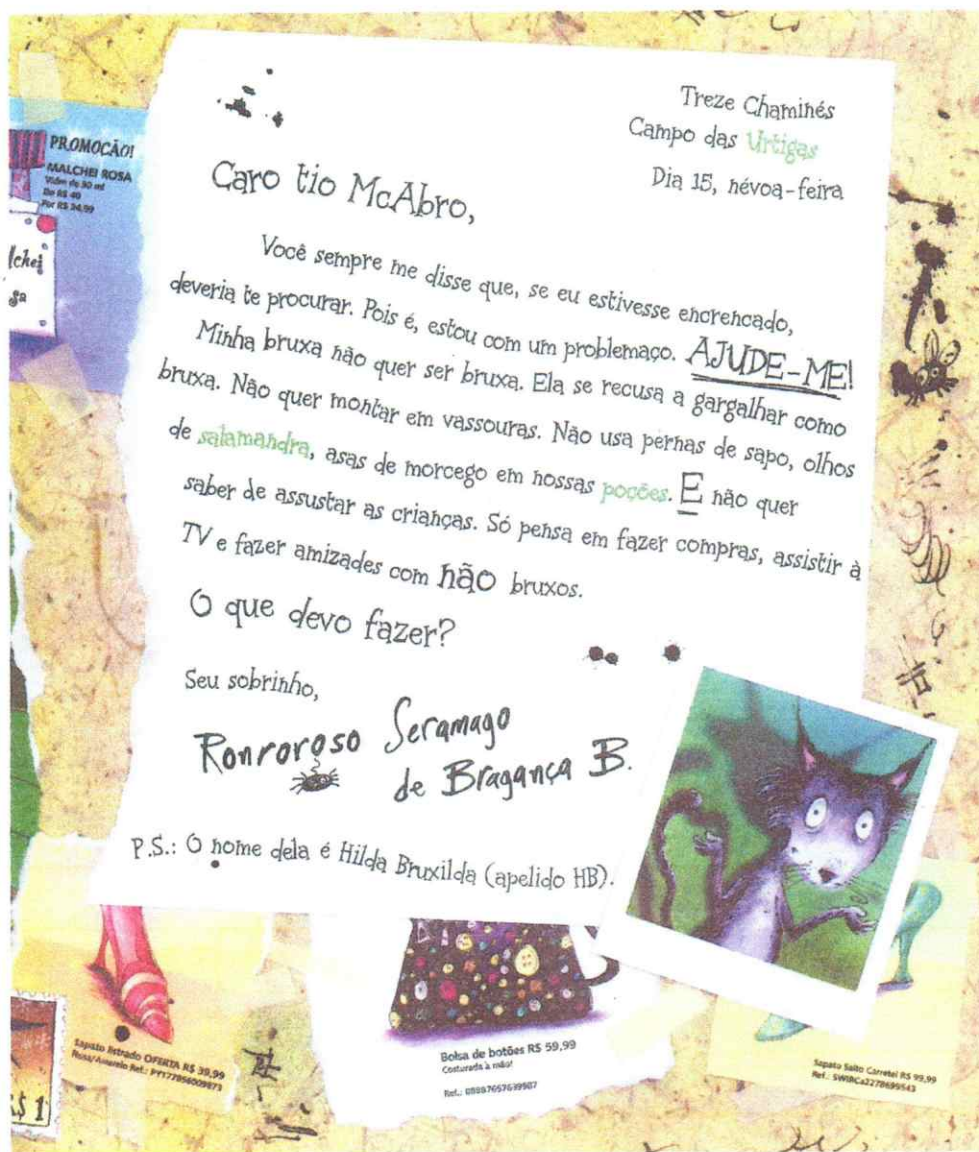 Treze Chaminés
Campo das Urtigas
Dia 15, névoa-feira
Caro tio McAbro,
Você sempre me disse que, se eu estivesse encrencado,
deveria te procurar. Pois é, estou com um problemaço. AJUDE-ME!
Minha bruxa não quer ser bruxa. Ela se recusa a gargalhar como
bruxa. Não quer montar em vassouras. Não usa pernas de sapo, olhos
de salamandra, asas de morcego em nossas poções. E não quer
saber de assustar as crianças. Só pensa em fazer compras, assistir à
TV e fazer amizades com não bruxos.
O que devo fazer?
Seu sobrinho,
Ronroroso Seramago
de Bragança B.
P.S.: O nome dela é Hilda Bruxilda (apelido HB).
PROMOÇÃO!
MALCHEI ROSA
Vidro de 30 ml
De R$ 40
Por R$ 34,99
lchei
sa
Sapato listrado OFERTA R$ 39,99
Rosa/Amarelo Ref.: PY177956009873
R$ 1
Bolsa de botões R$ 59,99
Costurada à mão!
Ref.: 08897657639987
Sapato Salto Carretel R$ 99,99
Ref.: SWIRCa2278699543